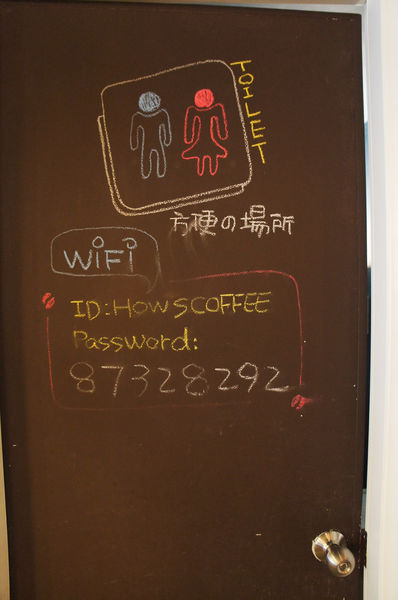 TOILET
方便の場所
WiFi
ID:HOWSCOFFEE
Password:
87328292